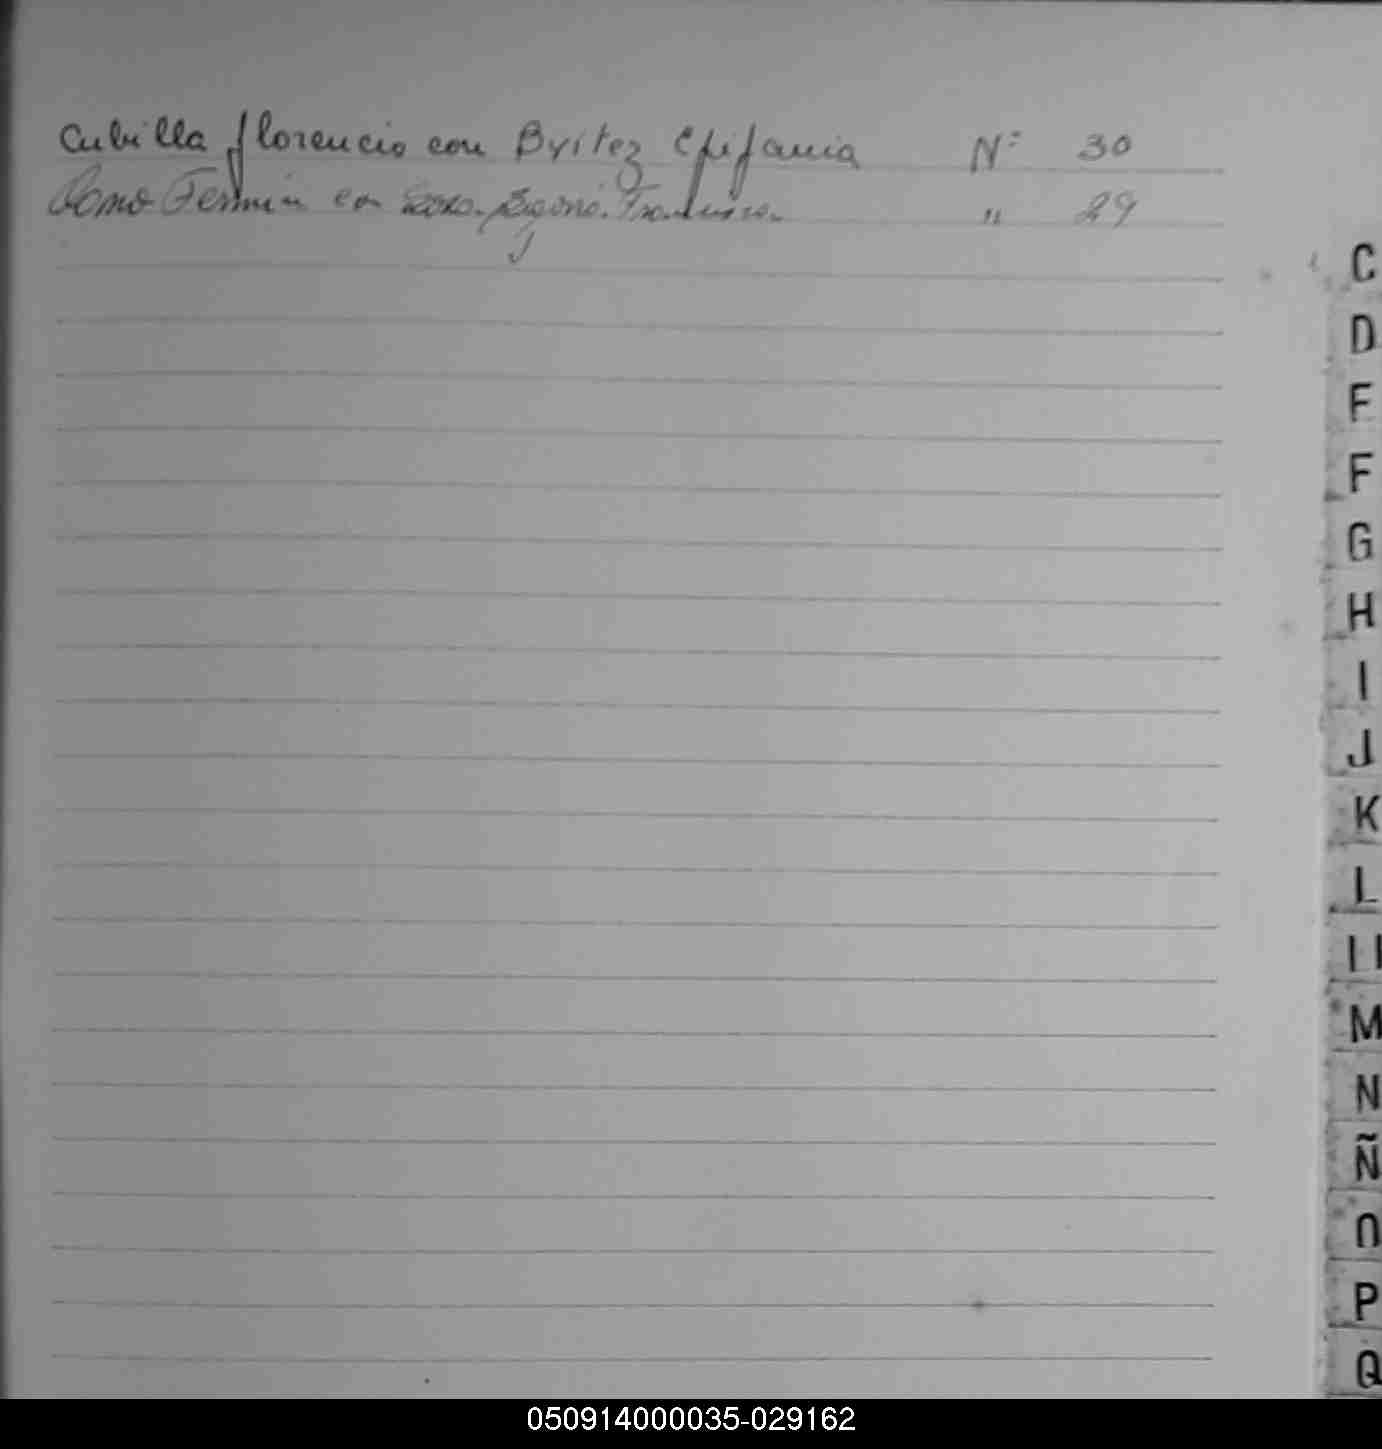 Cubilla florencio con Byitez Epifania Nº 30
Fermin con Francisca " 29
C
D
E
F
G
H
I
J
K
L
Ll
M
N
Ñ
O
P
Q
050914000035-029162